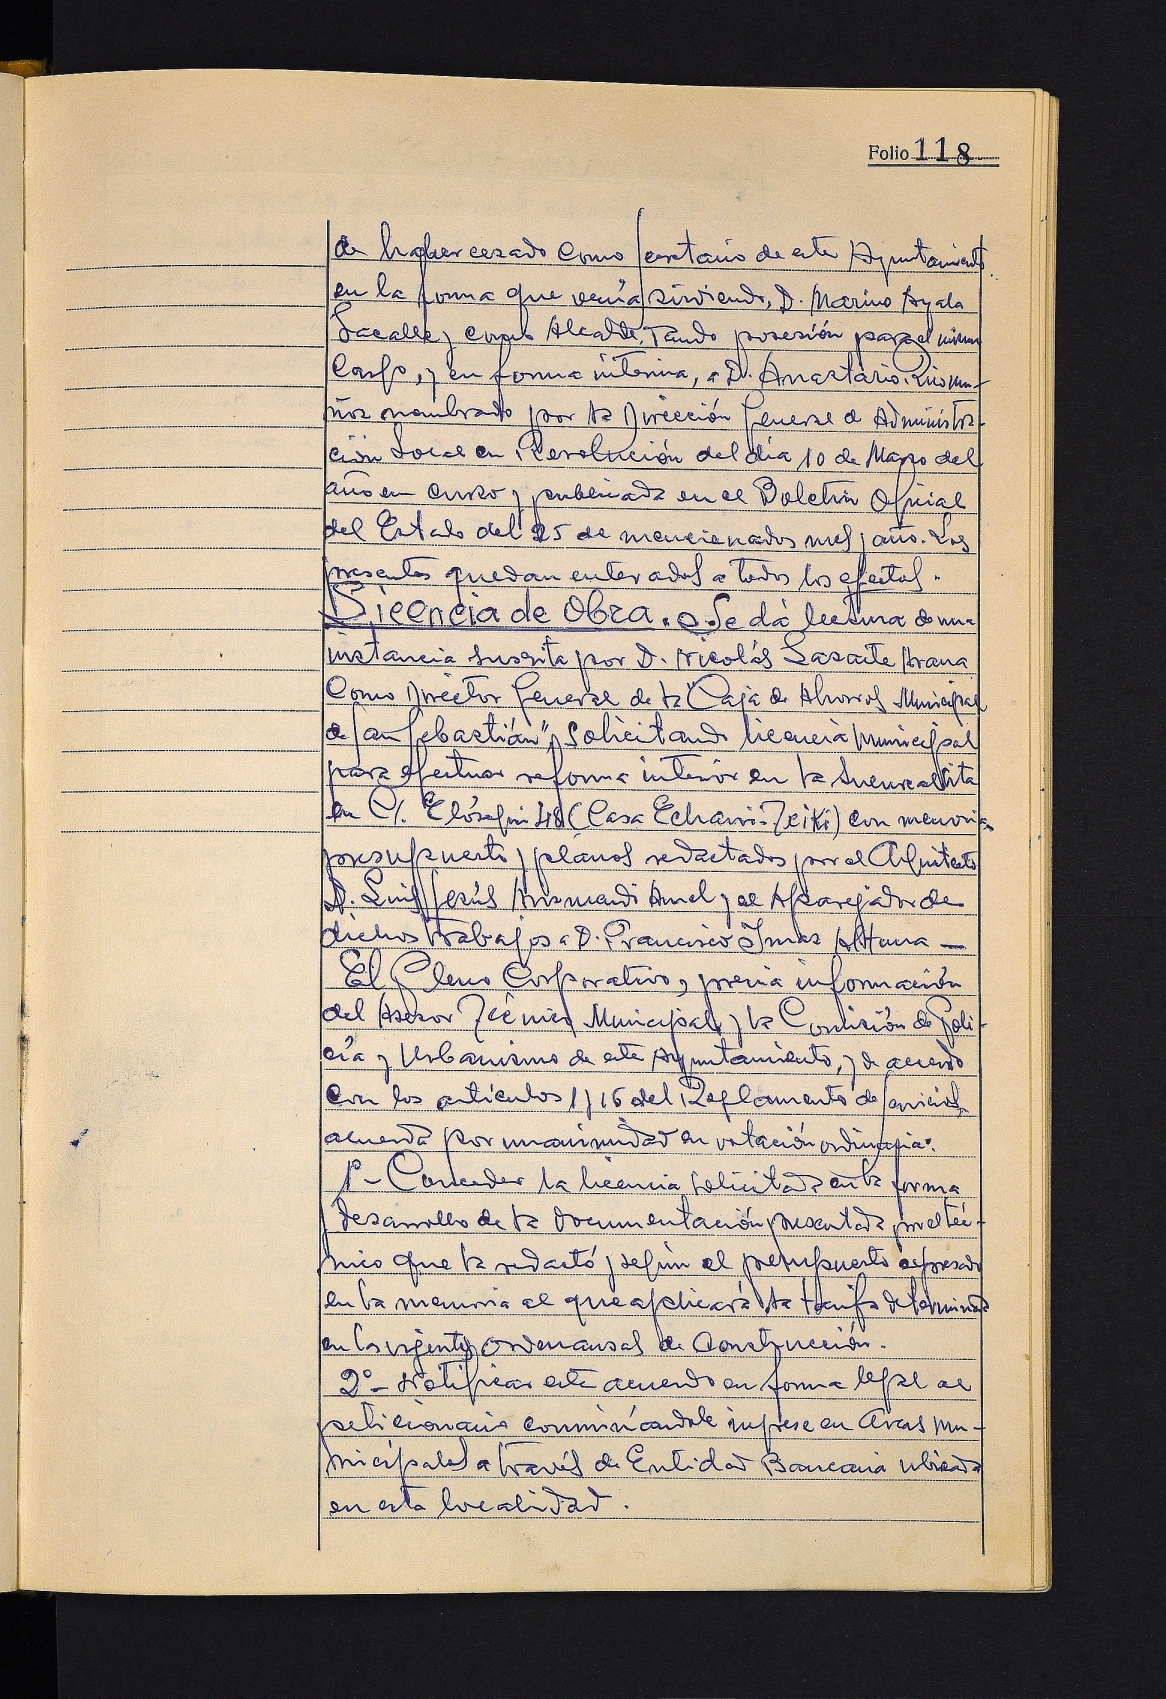 Folio 118
de haber cesado como Secretario de este Ayuntamiento
en la forma que venía sirviendo, D. Marino Ayala
Lacalle y como Alcalde, dando posesión para el mismo
Cargo, y en forma interina, a D. Anastasio
nombrado por la Dirección General de Administra-
ción Local en Resolución del día 10 de Marzo del
año en curso y publicada en el Boletín Oficial
del Estado del 25 de mencionados mes y año. Los
presentes quedan enterados a todos los efectos.
Licencia de Obra. Se dá lectura de una
instancia suscrita por D. Nicolás Lasarte Arana
Como Director General de la "Caja de Ahorros Municipal
de San Sebastián", solicitando licencia municipal
para efectuar reforma interior en la Sucursal sita
en C/. Elósegui 48 (Casa Echarri-Txiki) con memoria,
presupuesto y planos redactados por el Arquitecto
D. Luis Jesús Arizmendi Amel y el Aparejador de
dichos trabajos a D. Francisco Imaz Altuna —
El Pleno Corporativo, previa información
del Asesor Técnico Municipal, y la Comisión de Poli-
cía y Urbanismo de este Ayuntamiento, y de acuerdo
con los artículos 1 y 16 del Reglamento de Servicios,
acuerda por unanimidad en votación ordinaria:
1º- Conceder la licencia solicitada en la forma
y desarrollo de la documentación presentada por el téc-
nico que la redactó y según el presupuesto expresado
en la memoria al que aplicará la tarifa determinada
en las vigentes Ordenanzas de Construcción.
2º- Notificar este acuerdo en forma legal al
peticionario conminándole ingrese en Arcas Mu-
nicipales a través de Entidad Bancaria ubicada
en esta localidad.